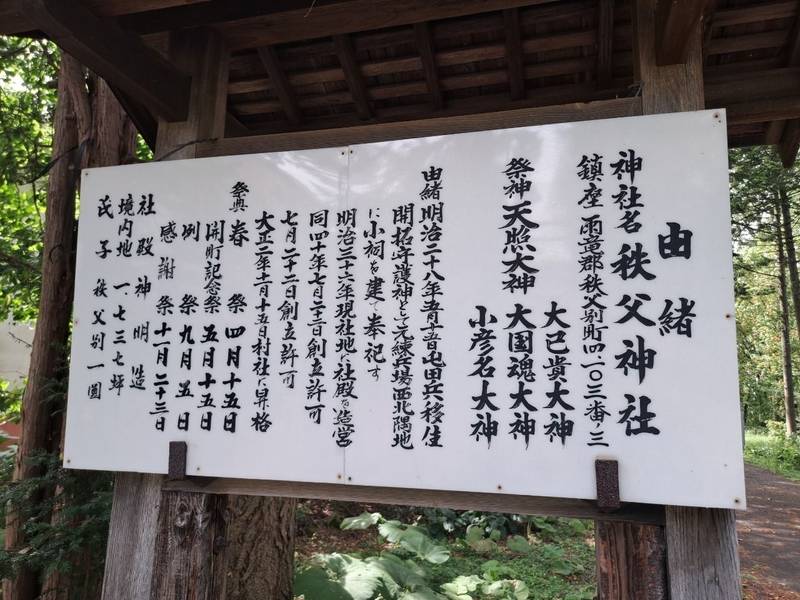 由緒
神社名 秩父神社
鎮座 雨竜郡秩父別町四一〇三番ノ三
大已貴大神
祭神 天照大神 大国魂大神
小彦名大神
由緒 明治二十八年五月十五日屯田兵移住
開拓守護神として元練兵場西北隅地
に小祠を建て奉祀す
明治三十六年現社地に社殿を造営
同四十年七月二十二日創立許可
七月二十二創立許可
大正二年十一月十五日村社に昇格
祭典 春祭 四月十五日
開町記念祭 五月十五日
例祭 九月五日
感謝祭 十一月二十三日
社殿 神明造
境内地 一、七三七坪
氏子 秩父別一圓